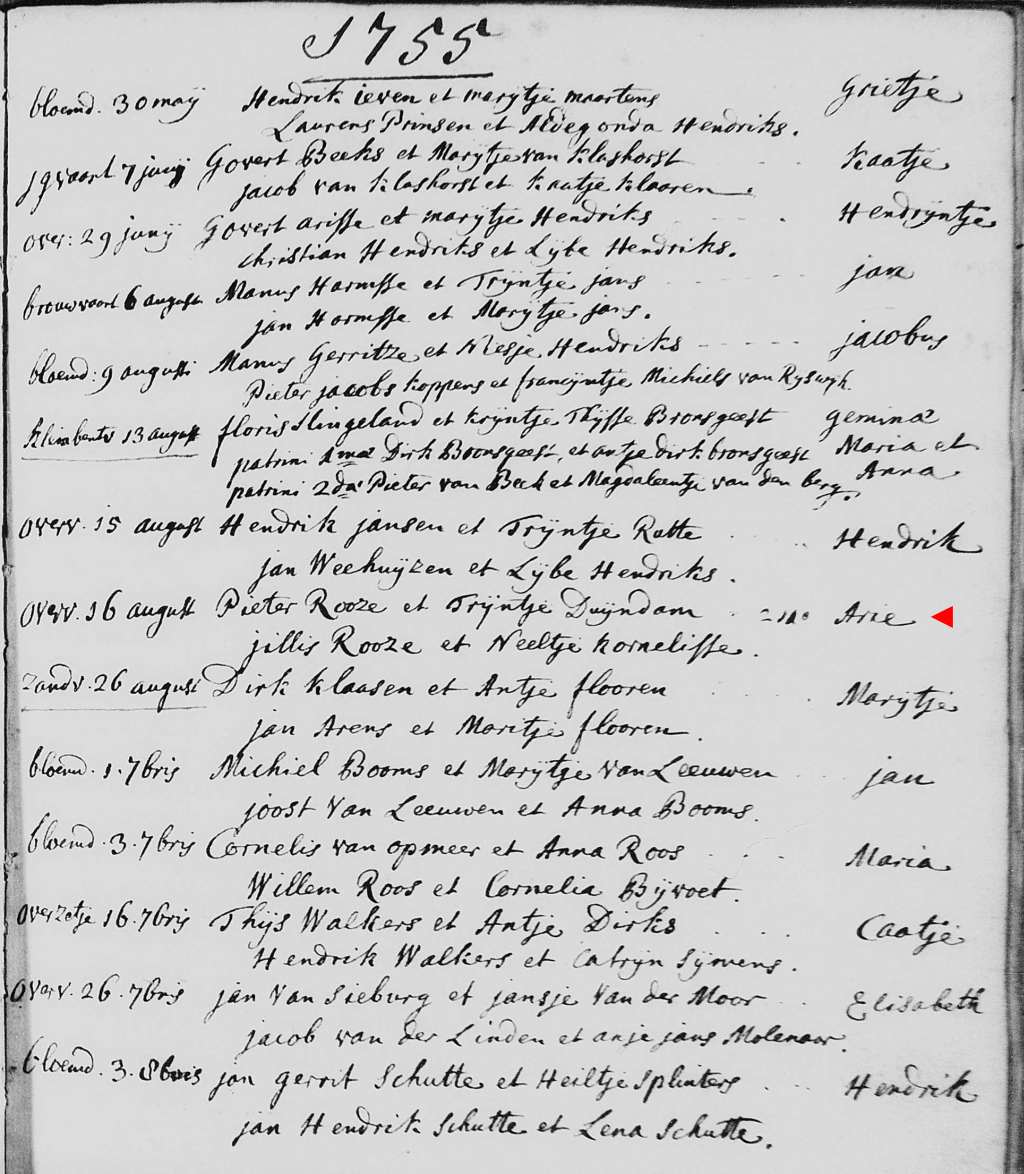 1755
bloemd. 30 maÿ Hendrik ieven et marÿtje maartens Grietje
Laurens Prinsen et Aldegonda Hendriks.
jgvaart 7 junÿ Govert Beeks et Marÿtje van Klashorst Kaatje
jacob van Klashorst et Kaatje Klaaren.
over: 29 junÿ Govert arisse et marÿtje Hendriks Hendrÿntje
christian Hendriks et Lÿbe Hendriks.
brouwvaart 6 august Manus Harmsse et Trÿntje jans jan
jan Hormsse et Marÿtje jans.
bloemd: 9 augusti Manus Gerritze et Niesje Hendriks jacobus
Pieter jacobs Koppens et francÿntje Michiels van Rÿswÿk.
13 august floris Slingeland et Krÿntje Thÿsse Bronsgeest geminæ
patrini 1mæ Dirk Boonsgeest, et antje dirk bronsgeest Maria et
patrini 2dæ Pieter van Beek et Magdaleentje van den berg. Anna
Overv. 15 august Hendrik jansen et Trÿntje Ratte Hendrik
jan Weehuÿzen et Lÿbe Hendriks.
Overv. 16 august Pieter Rooze et Trÿntje Duÿndam Arie
jillis Rooze et Neeltje Kornelisse.
zandv. 26 august Dirk Klaasen et Antje flooren Marÿtje
jan Arens et Maritje flooren.
bloemd. 1. 7bris Michiel Booms et Marÿtje van Leeuwen jan
joost Van Leeuwen et Anna Booms.
bloemd. 3. 7bris Cornelis van opmeer et Anna Roos Maria
Willem Roos et Cornelia Bÿvoet.
Overzetje 16. 7bris Thÿs Walkers et Antje Dirks Caatje
Hendrik Walkers et Catrÿn Sÿmens.
Overv. 26. 7bris jan Van Sieburg et jansje Van der Moor Elisabeth
jacob van der Linden et anje jans Molenaar.
bloemd. 3. 8bris jan gerrit Schutte et Heiltje Splinters Hendrik
jan Hendrik Schutte et Lena Schutte.